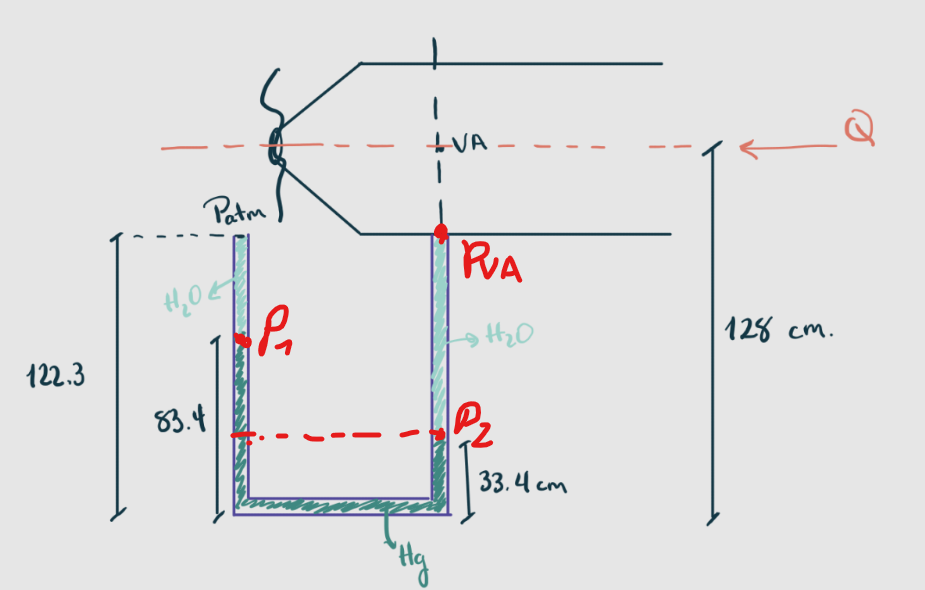 Q
VA
Patm
PVA
H2O
P1
H2O
128 cm.
122.3
83.4
P2
33.4 cm
Hg